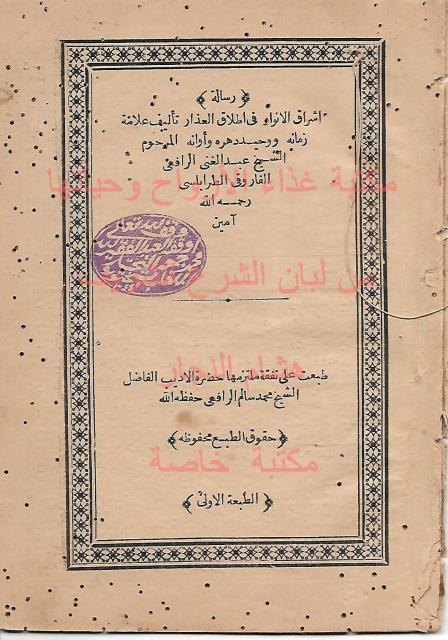 ﴿ رسالة ﴾
اشراق الانوار فى اطلاق العذار تأليف علامة
زمانه ووحيد دهره وأوانه المرحوم
الشيخ عبد الغنى الرافعى
الفاروقى الطرابلسى
رحمه الله
آمين
مكتبة غذاء الارواح وحياتها
من لبان الشرع
هشام النجار
طبعت على نفقة ملتزمها حضرة الاديب الفاضل
الشيخ محمد سالم الرافعى حفظه الله
﴿ حقوق الطبع محفوظه ﴾
مكتبة خاصة
﴿ الطبعة الاولى ﴾